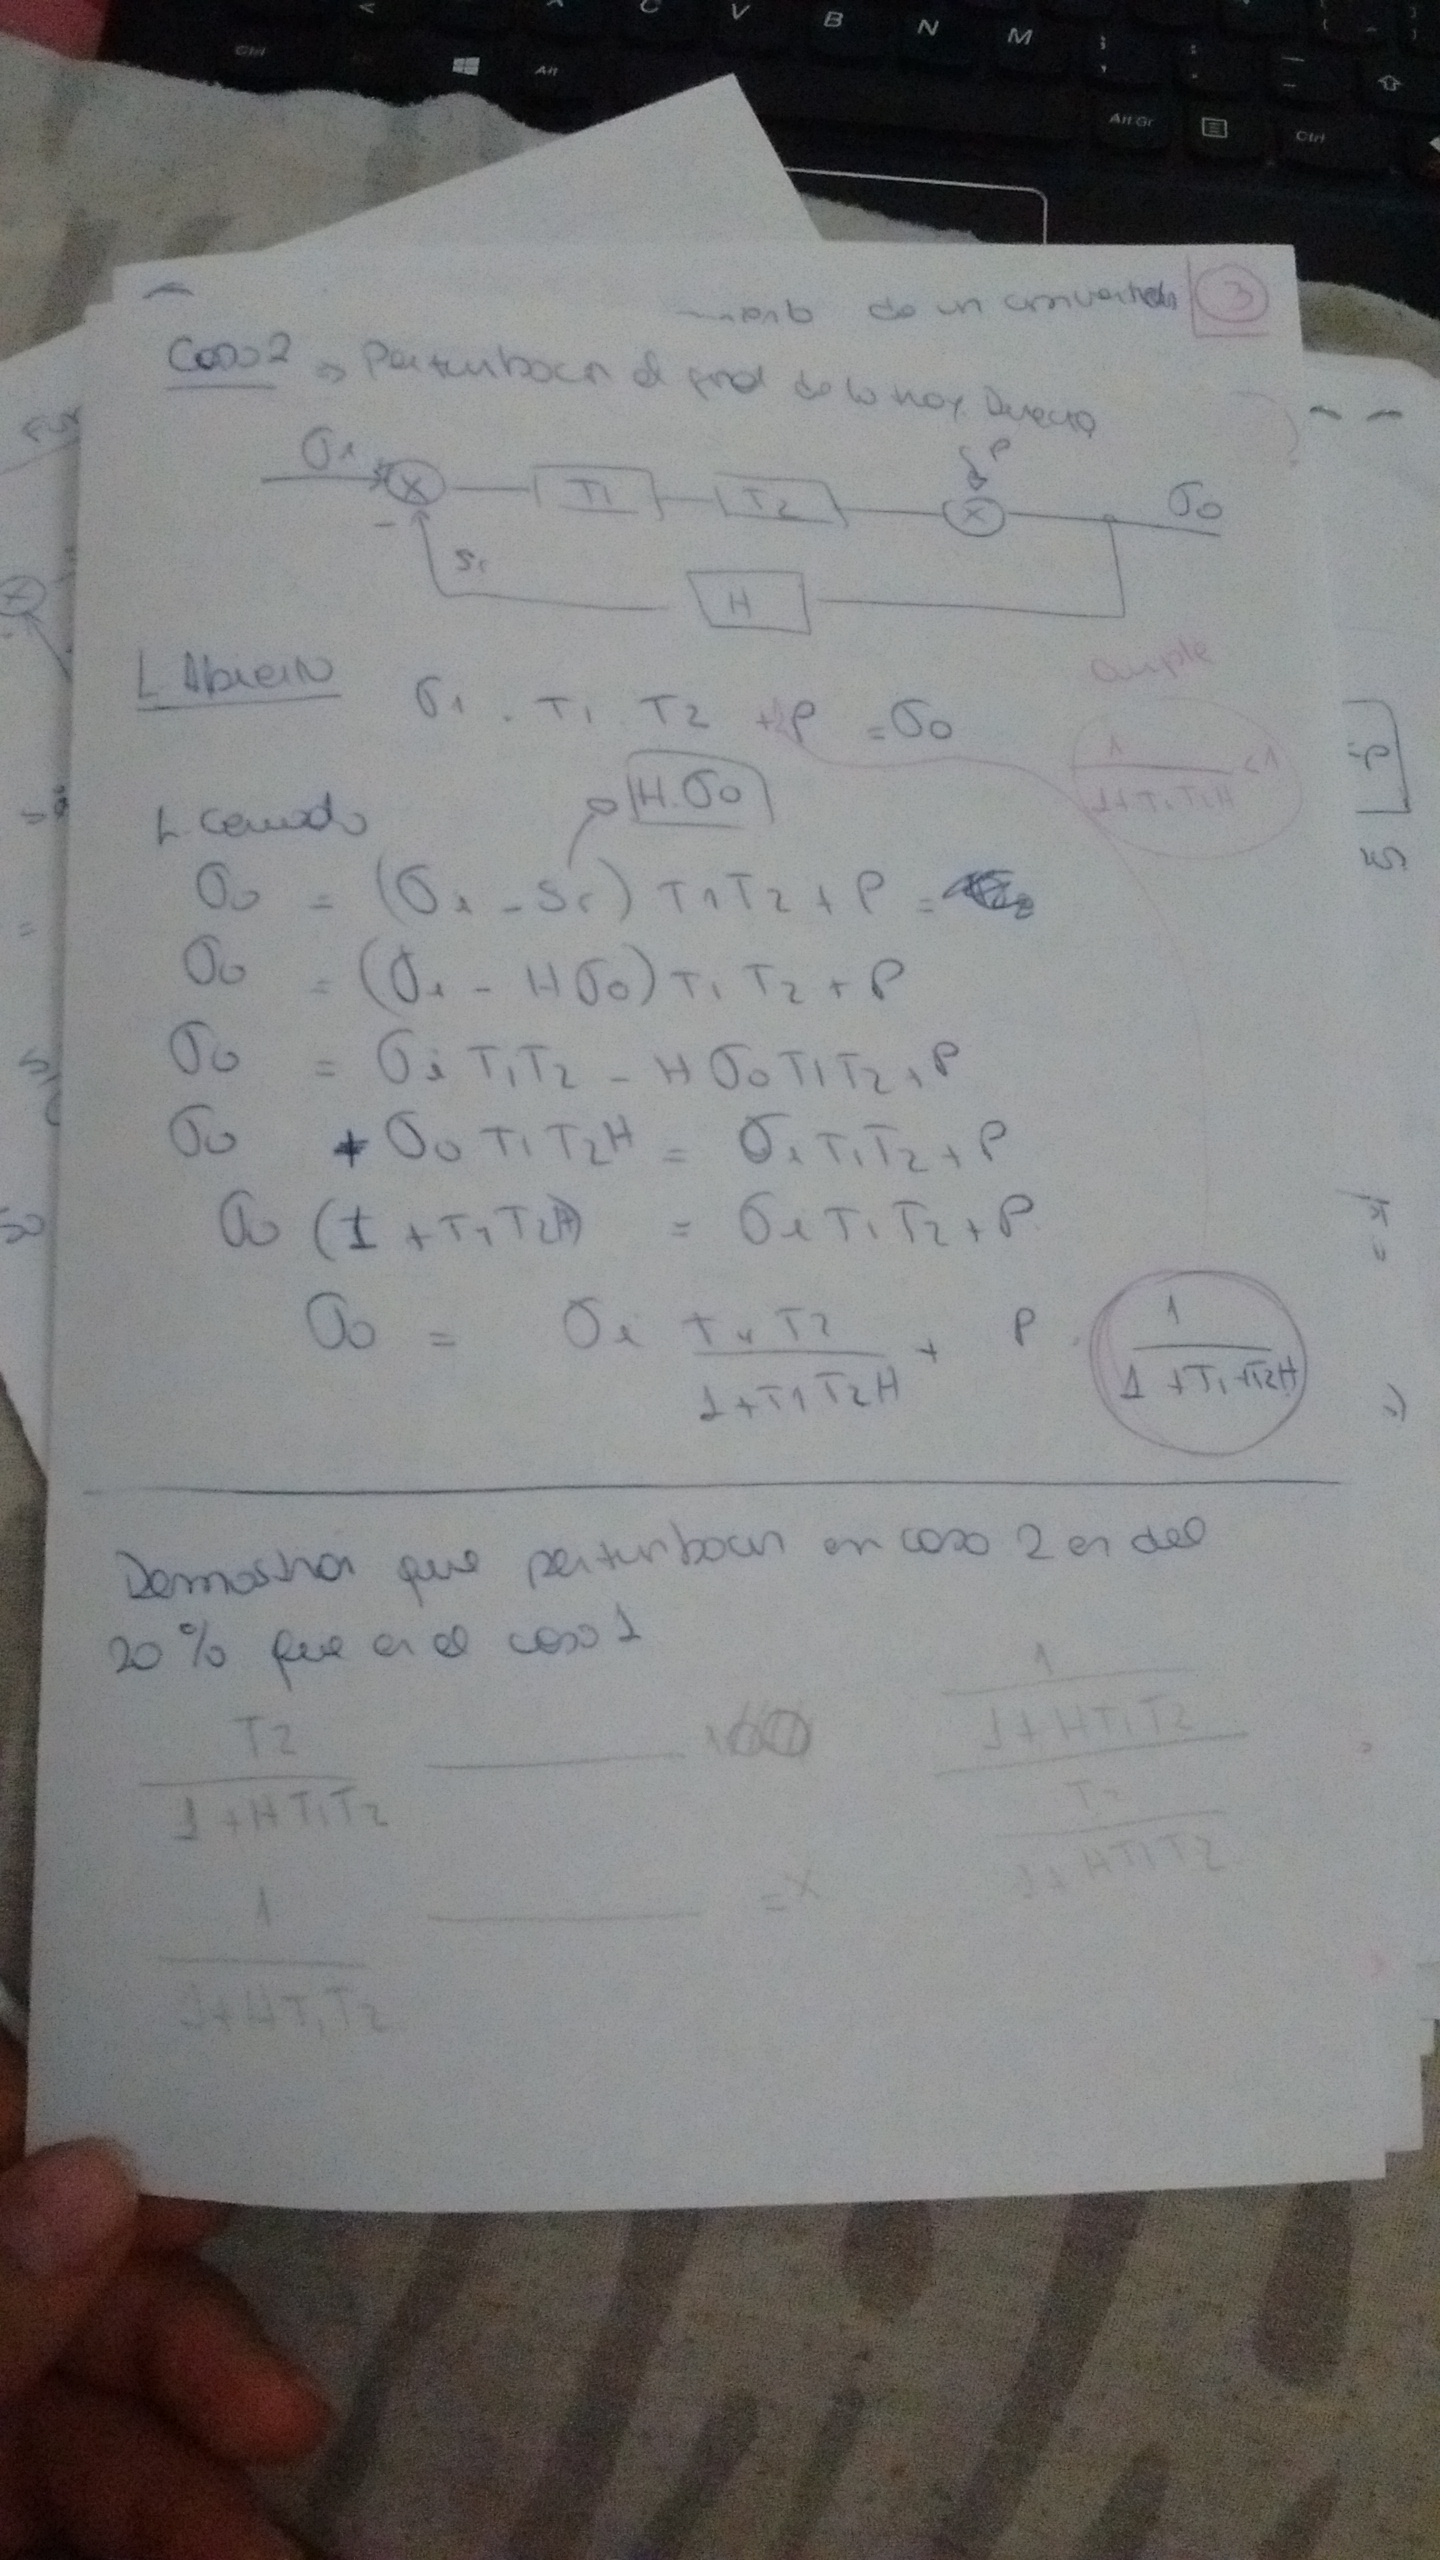 C V B N M
Ctrl Alt Alt Gr Ctrl
de un 3
Caso 2 => Perturbacn al final de la
σi x T1 T2 x P σo
- Sr H
L Abierto σi . T1 . T2 + P = σo
Cumple
1 / 1+T1T2H <1
H.σo
L cerrado
σo = (σi - Sr) T1T2 + P =
σo = (σi - Hσo) T1 T2 + P
σo = σi T1T2 - H σo T1T2 + P
σo + σo T1T2H = σi T1T2 + P
σo (1 + T1T2H) = σi T1T2 + P
σo = σi T1T2 / 1+T1T2H + P . 1 / 1+T1+T2H
Demostrar que perturbacn en caso 2 es del
20% que en el caso 1
T2 / 1+HT1T2 100
1 / 1+HT1T2 = x
1 / 1+HT1T2 / T2 / 1+HT1T2